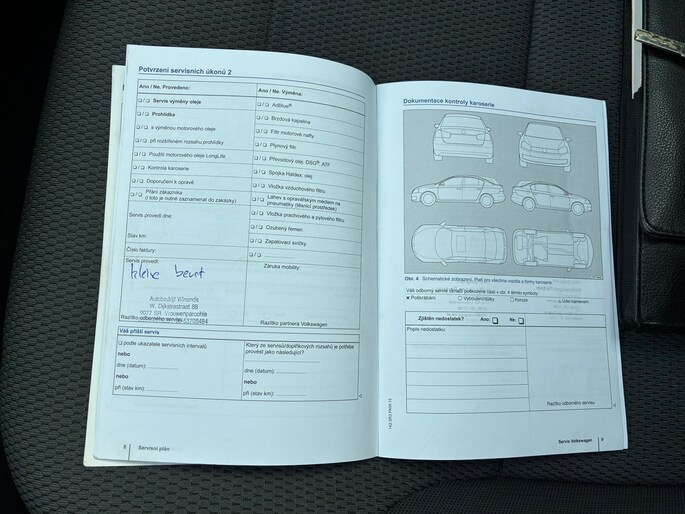 Potvrzení servisních úkonů 2
Ano / Ne. Provedeno:
❑ / ❑ Servis výměny oleje
❑ / ❑ Prohlídka
❑ / ❑ s výměnou motorového oleje
❑ / ❑ při rozšířeném rozsahu prohlídky
❑ / ❑ Použití motorového oleje LongLife
❑ / ❑ Kontrola karoserie
❑ / ❑ Doporučení k opravě
❑ / ❑ Přání zákazníka
(i toto je nutné zaznamenat do zakázky)
Servis provedl dne:
Stav km:
Číslo faktury:
Servis provedl:
kleine beurt
Autobedrijf Wiersma
W. Dijkstrastraat 8B
9077 SR Vrouwenparochie
Razítko odborného servisu
Ano / Ne. Výměna:
❑ / ❑ AdBlue®
❑ / ❑ Brzdová kapalina
❑ / ❑ Filtr motorové nafty
❑ / ❑ Plynový filtr
❑ / ❑ Převodový olej, DSG®, ATF
❑ / ❑ Spojka Haldex: olej
❑ / ❑ Vložka vzduchového filtru
❑ / ❑ Láhev s opravářským médiem na
pneumatiky (těsnicí prostředek)
❑ / ❑ Vložka prachového a pylového filtru
❑ / ❑ Ozubený řemen
❑ / ❑ Zapalovací svíčky
❑ / ❑
Záruka mobility:
Razítko partnera Volkswagen
Váš příští servis
❑ podle ukazatele servisních intervalů
nebo
dne (datum):
nebo
při (stav km):
Který ze servisů/doplňkových rozsahů je potřeba
provést jako následující?
dne (datum):
nebo
při (stav km):
8 Servisní plán
Dokumentace kontroly karoserie
Obr. 4 Schematické zobrazení. Platí pro všechna vozidla a formy karoserie.
Váš odborný servis označí poškozené části v obr. 4 těmito symboly
Poškrábání
Vyboulení/rýhy
Koroze
Úder kamenem
Zjištěn nedostatek? Ano: ❑ Ne: ❑
Popis nedostatku:
Razítko odborného servisu
Servis Volkswagen 9